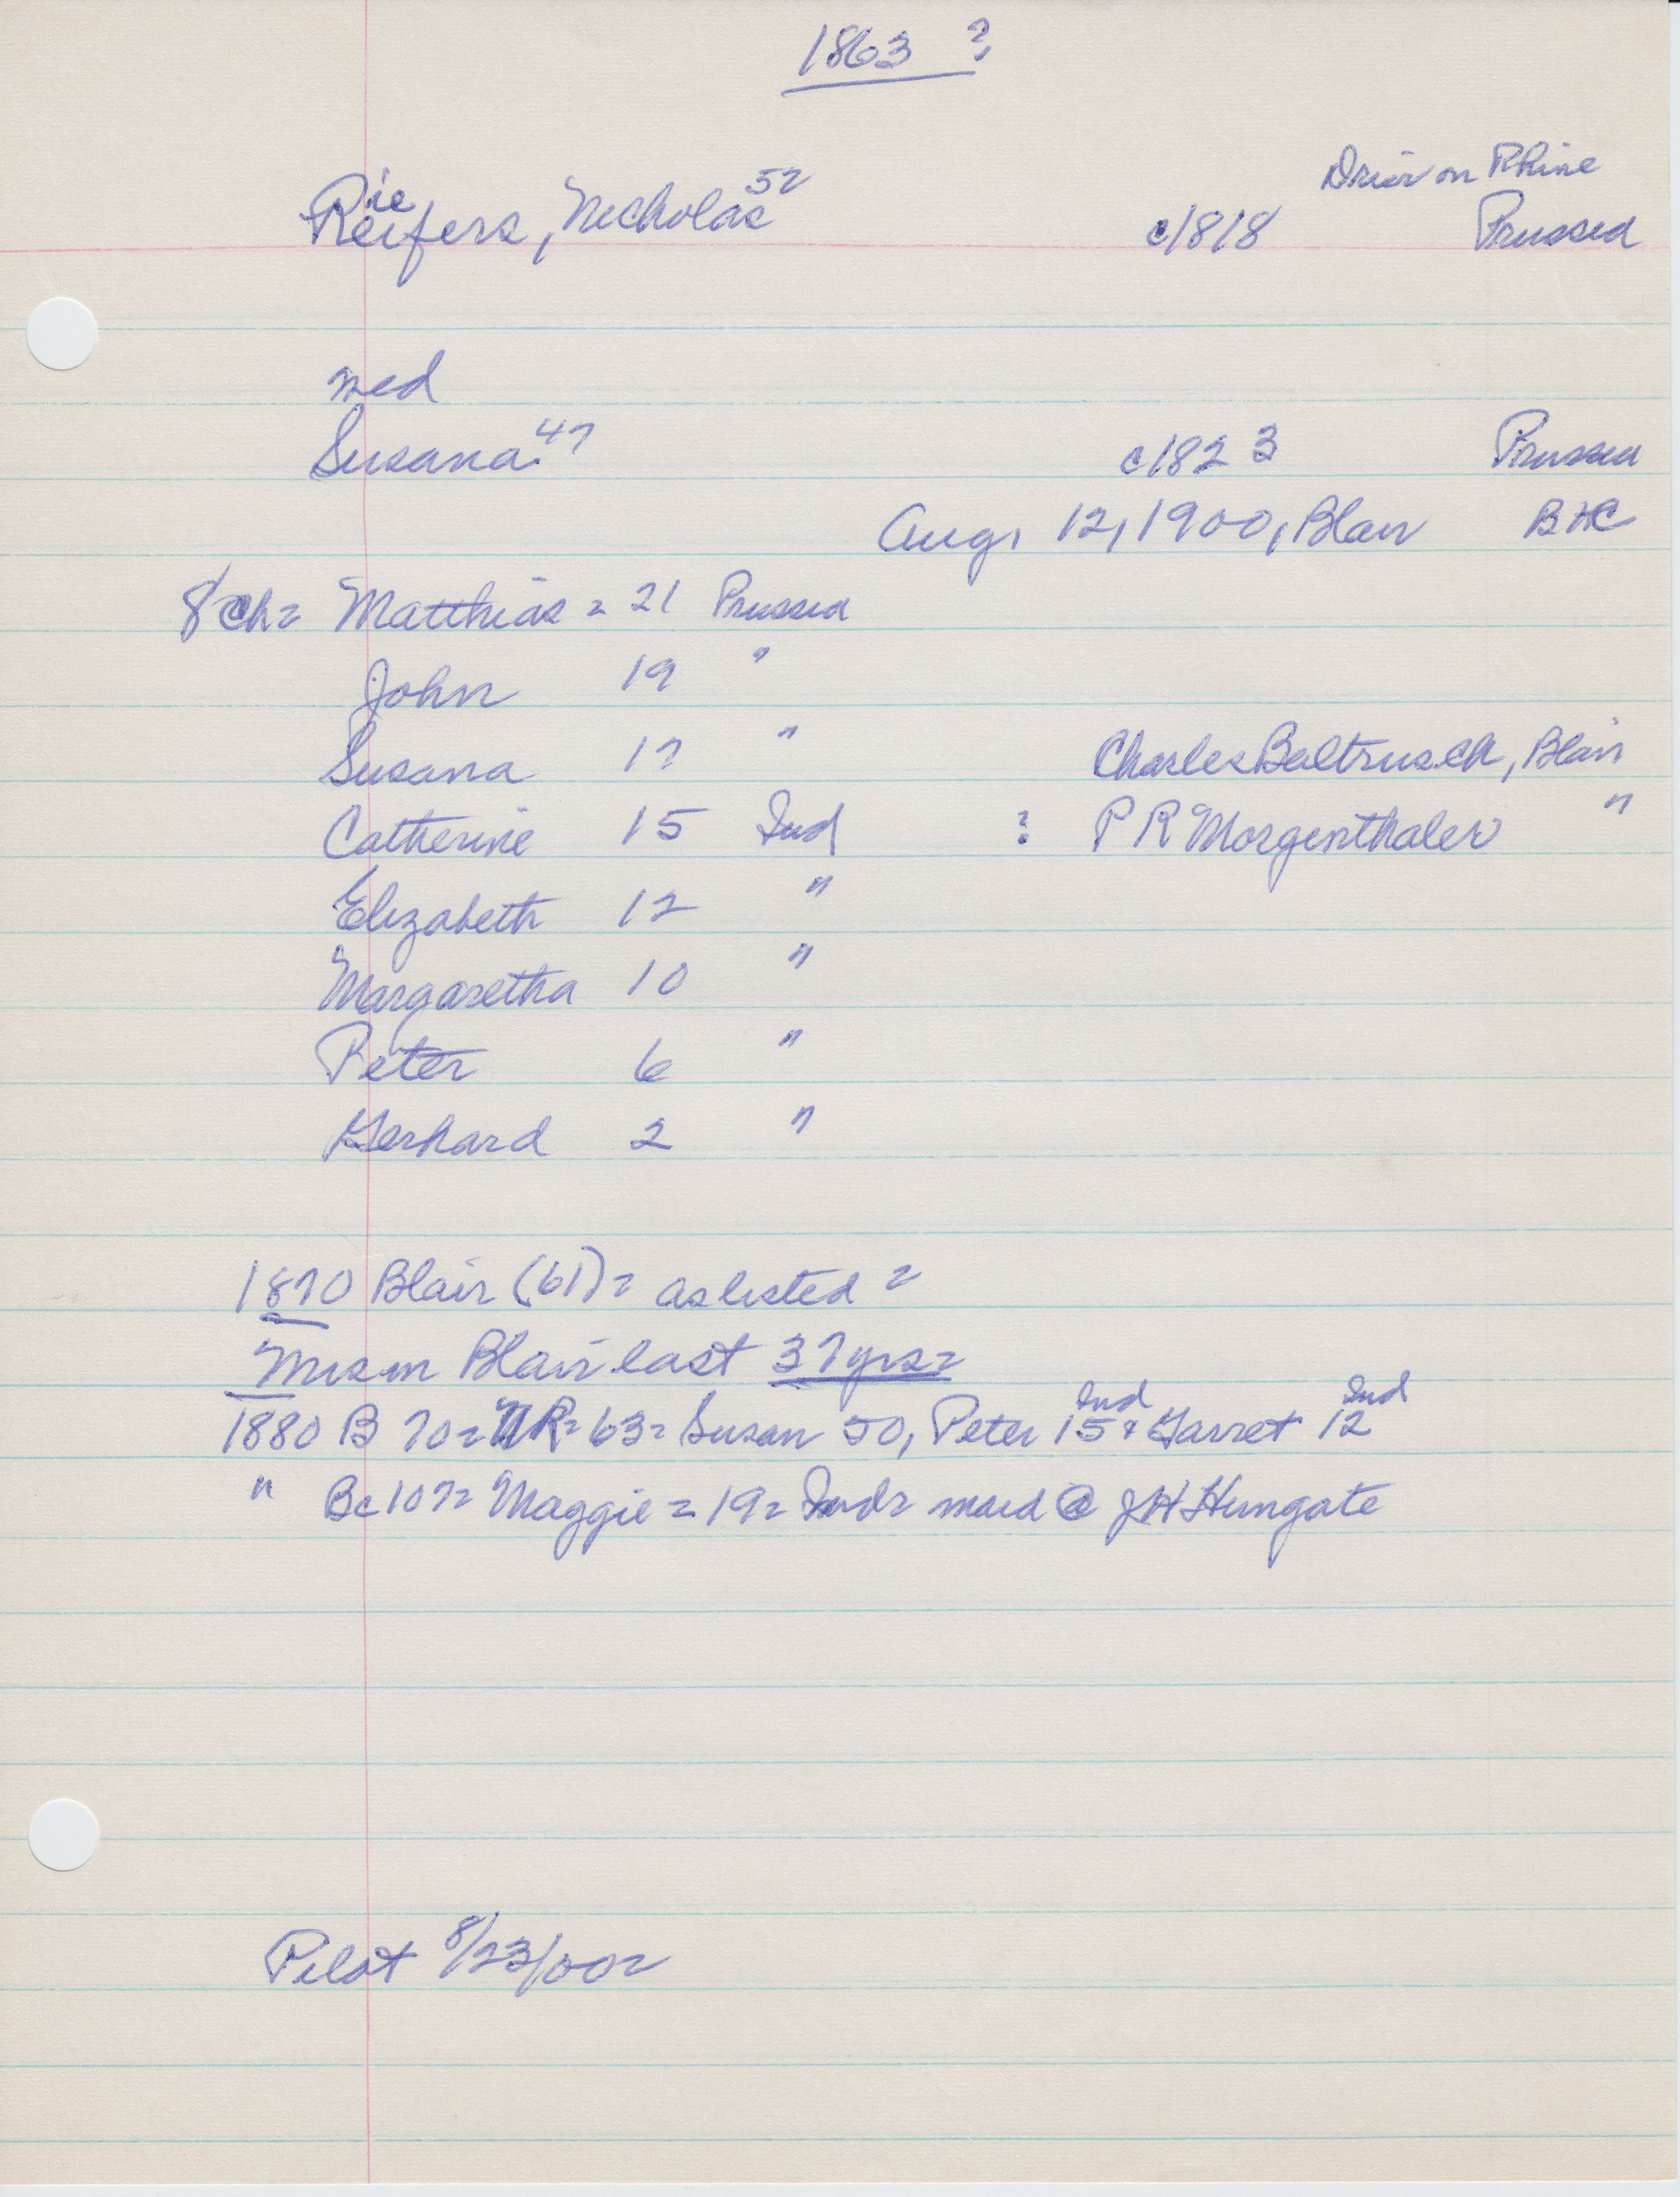 1863 ?
Drier on Rhine
ie
Reifers, Nicholas 52 c1818 Prussia
wed
Susana 47 c1823 Prussia
Aug, 12, 1900, Blair BHC
8 ch= Matthias = 21 Prussia
John 19 "
Susana 17 " Charles Baltrusch, Blair
Catherine 15 Ind : P R Morgenthaler "
Elizabeth 12 "
Margaretha 10 "
Peter 6 "
Gerhard 2 "
1870 Blair (61)= as listed =
Mrs in Blair last 37 yrs=
Ind Ind
1880 B 70= NR= 63= Susan 50, Peter 15 & Garret 12
" Bc 107= Maggie = 19= Ind= maid @ JH Hungate
Pilot 8/23/00=